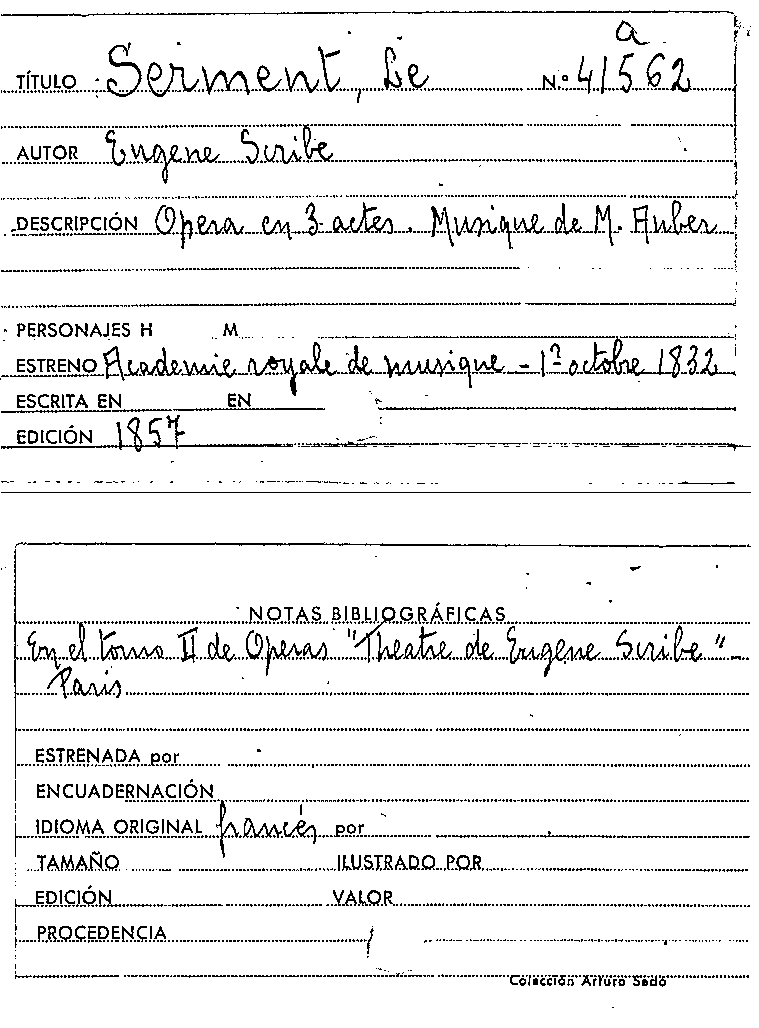 a
TÍTULO Serment, Le N.º 41562
AUTOR Eugene Scribe
DESCRIPCIÓN Opera en 3 actes. Musique de M. Auber
PERSONAJES H M
ESTRENO Academie royale de musique - 1º octobre 1832
ESCRITA EN EN
EDICIÓN 1857
NOTAS BIBLIOGRÁFICAS
En el tomo II de Operas "Theatre de Eugene Scribe" -
Paris
ESTRENADA por
ENCUADERNACIÓN
IDIOMA ORIGINAL francés por
TAMAÑO ILUSTRADO POR
EDICIÓN VALOR
PROCEDENCIA /
Colección Arturo Sedó